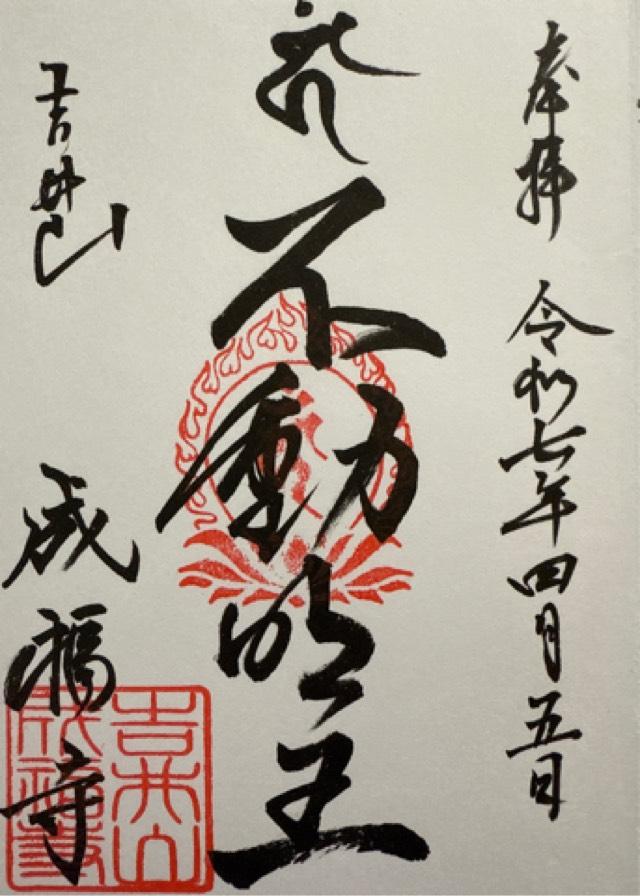 奉拝 令和七年四月五日
不動明王
吉井山 成福寺
吉井山
成福寺